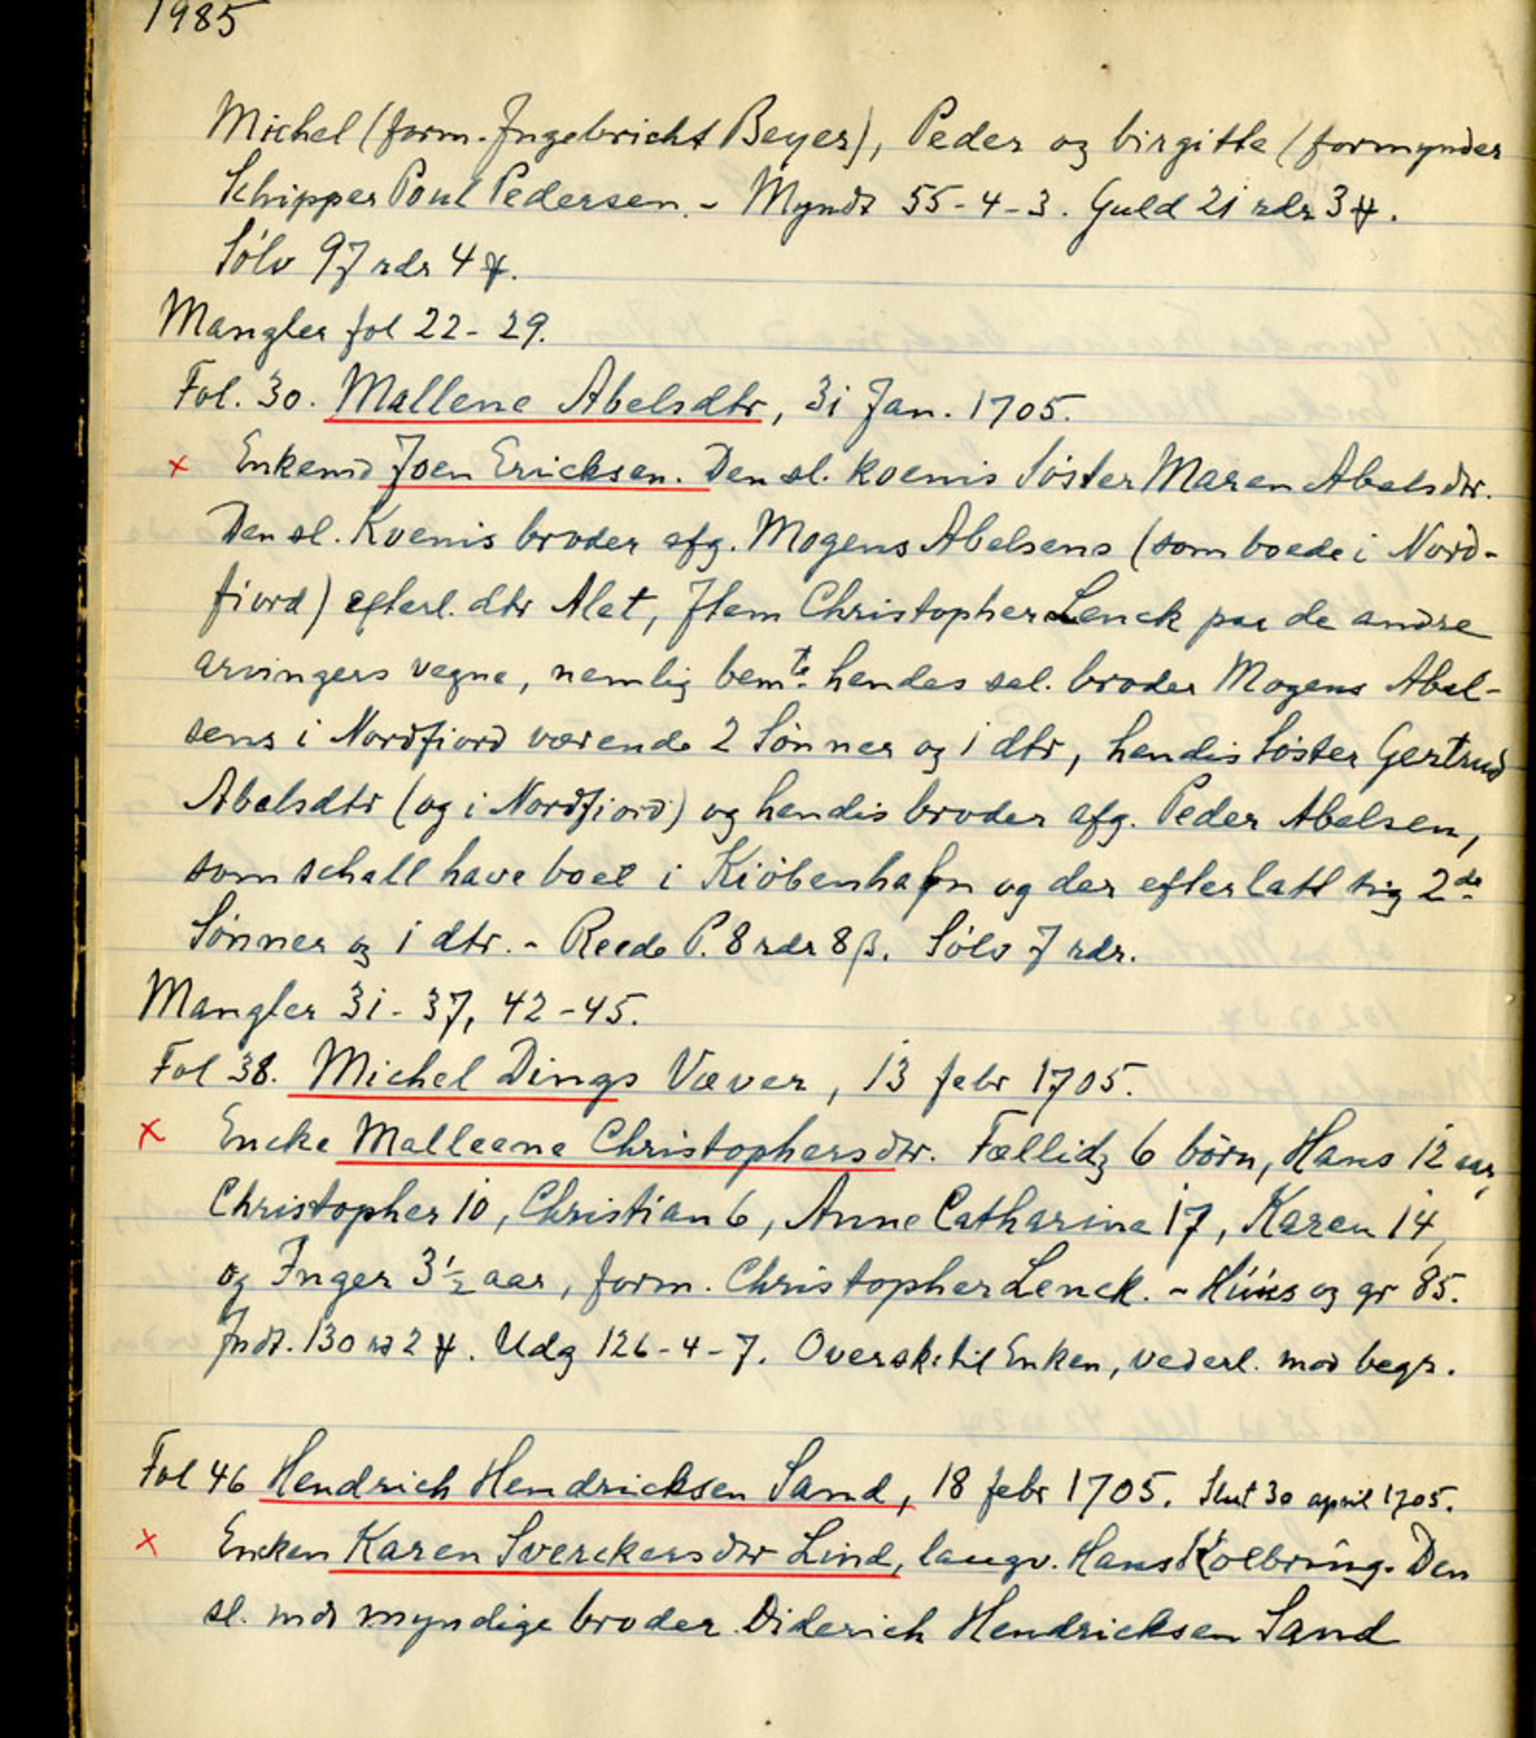 1985
Michel (form. Ingebricht Beyer), Peder og birgitte (formynder
Schipper Poul Pedersen. - Myndt 55-4-3. Guld 21 rdr 3 ꝟ.
Sölv 97 rdr 4 ꝟ.
Mangler fol 22-29.
Fol. 30. Mallene Abelsdtr, 31 Jan. 1705.
x Enkemd Joen Ericksen. Den sl. koenis Söster Maren Abelsdtr.
Den sl. Kvenis broder afg. Mogens Abelsens (som boede i Nord-
fiord) efterl. dtr Alet, Item Christopher Lenck paa de andre
arvingers vegne, nemlig bemte. hendes sal. broder Mogens Abel-
sens i Nordfiord værende 2 Sönner og 1 dtr, hendis Söster Gertrud
Abelsdtr (og i Nordfiord) og hendis broder afg. Peder Abelsen,
som schall have boet i Kiöbenhafn og der efterlatt sig 2de
Sönner og 1 dtr. - Reede P. 8 rdr 8 β. Sölv 7 rdr.
Mangler 31-37, 42-45.
Fol 38. Michel Dings Væver, 13 febr 1705.
x Encke Malleene Christophersdtr. Fællidz 6 börn, Hans 12 aar,
Christopher 10, Christian 6, Anne Catharina 17, Karen 14,
og Inger 3½ aar, form. Christopher Lenck. - Hüüs og gr 85.
Indt. 130 rd 2 ꝟ. Udg 126-4-7. Oversk. til Enken, vederl. mod begr.
Fol 46 Hendrich Hendricksen Sand, 18 febr 1705. Slut 30 april 1705.
x Encken Karen Sverckersdtr Lind, laugv. Hans Kolbring. Den
sl. mds myndige broder Diderich Hendricksen Sand